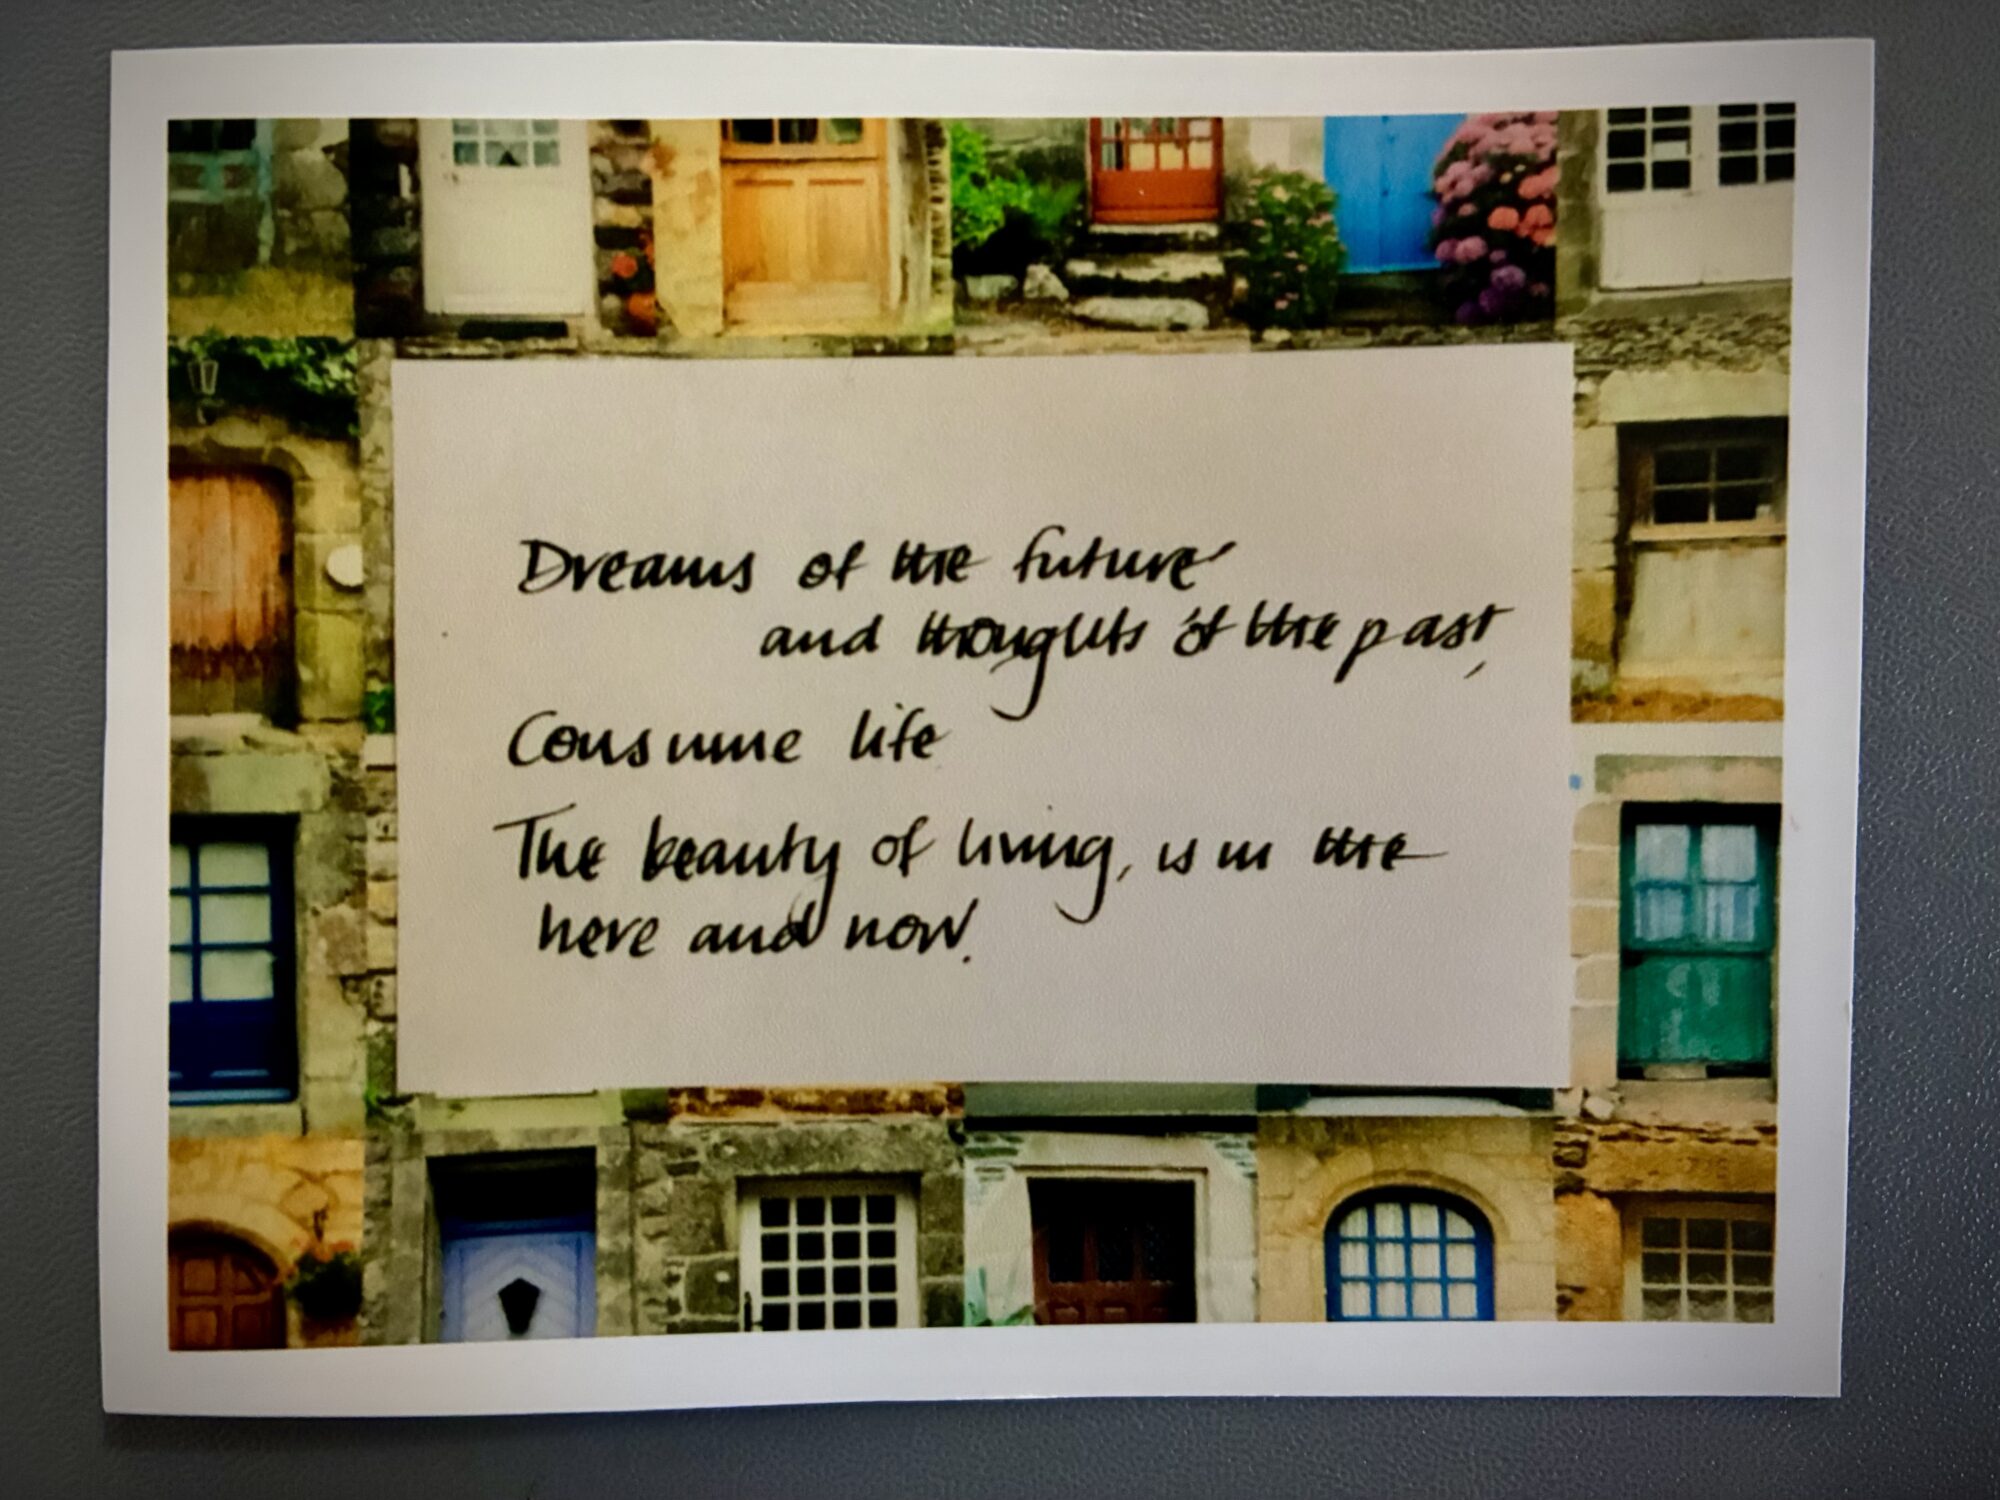 Dreams of the future
and thoughts of the past,
Consume life
The beauty of living, is in the
here and now.